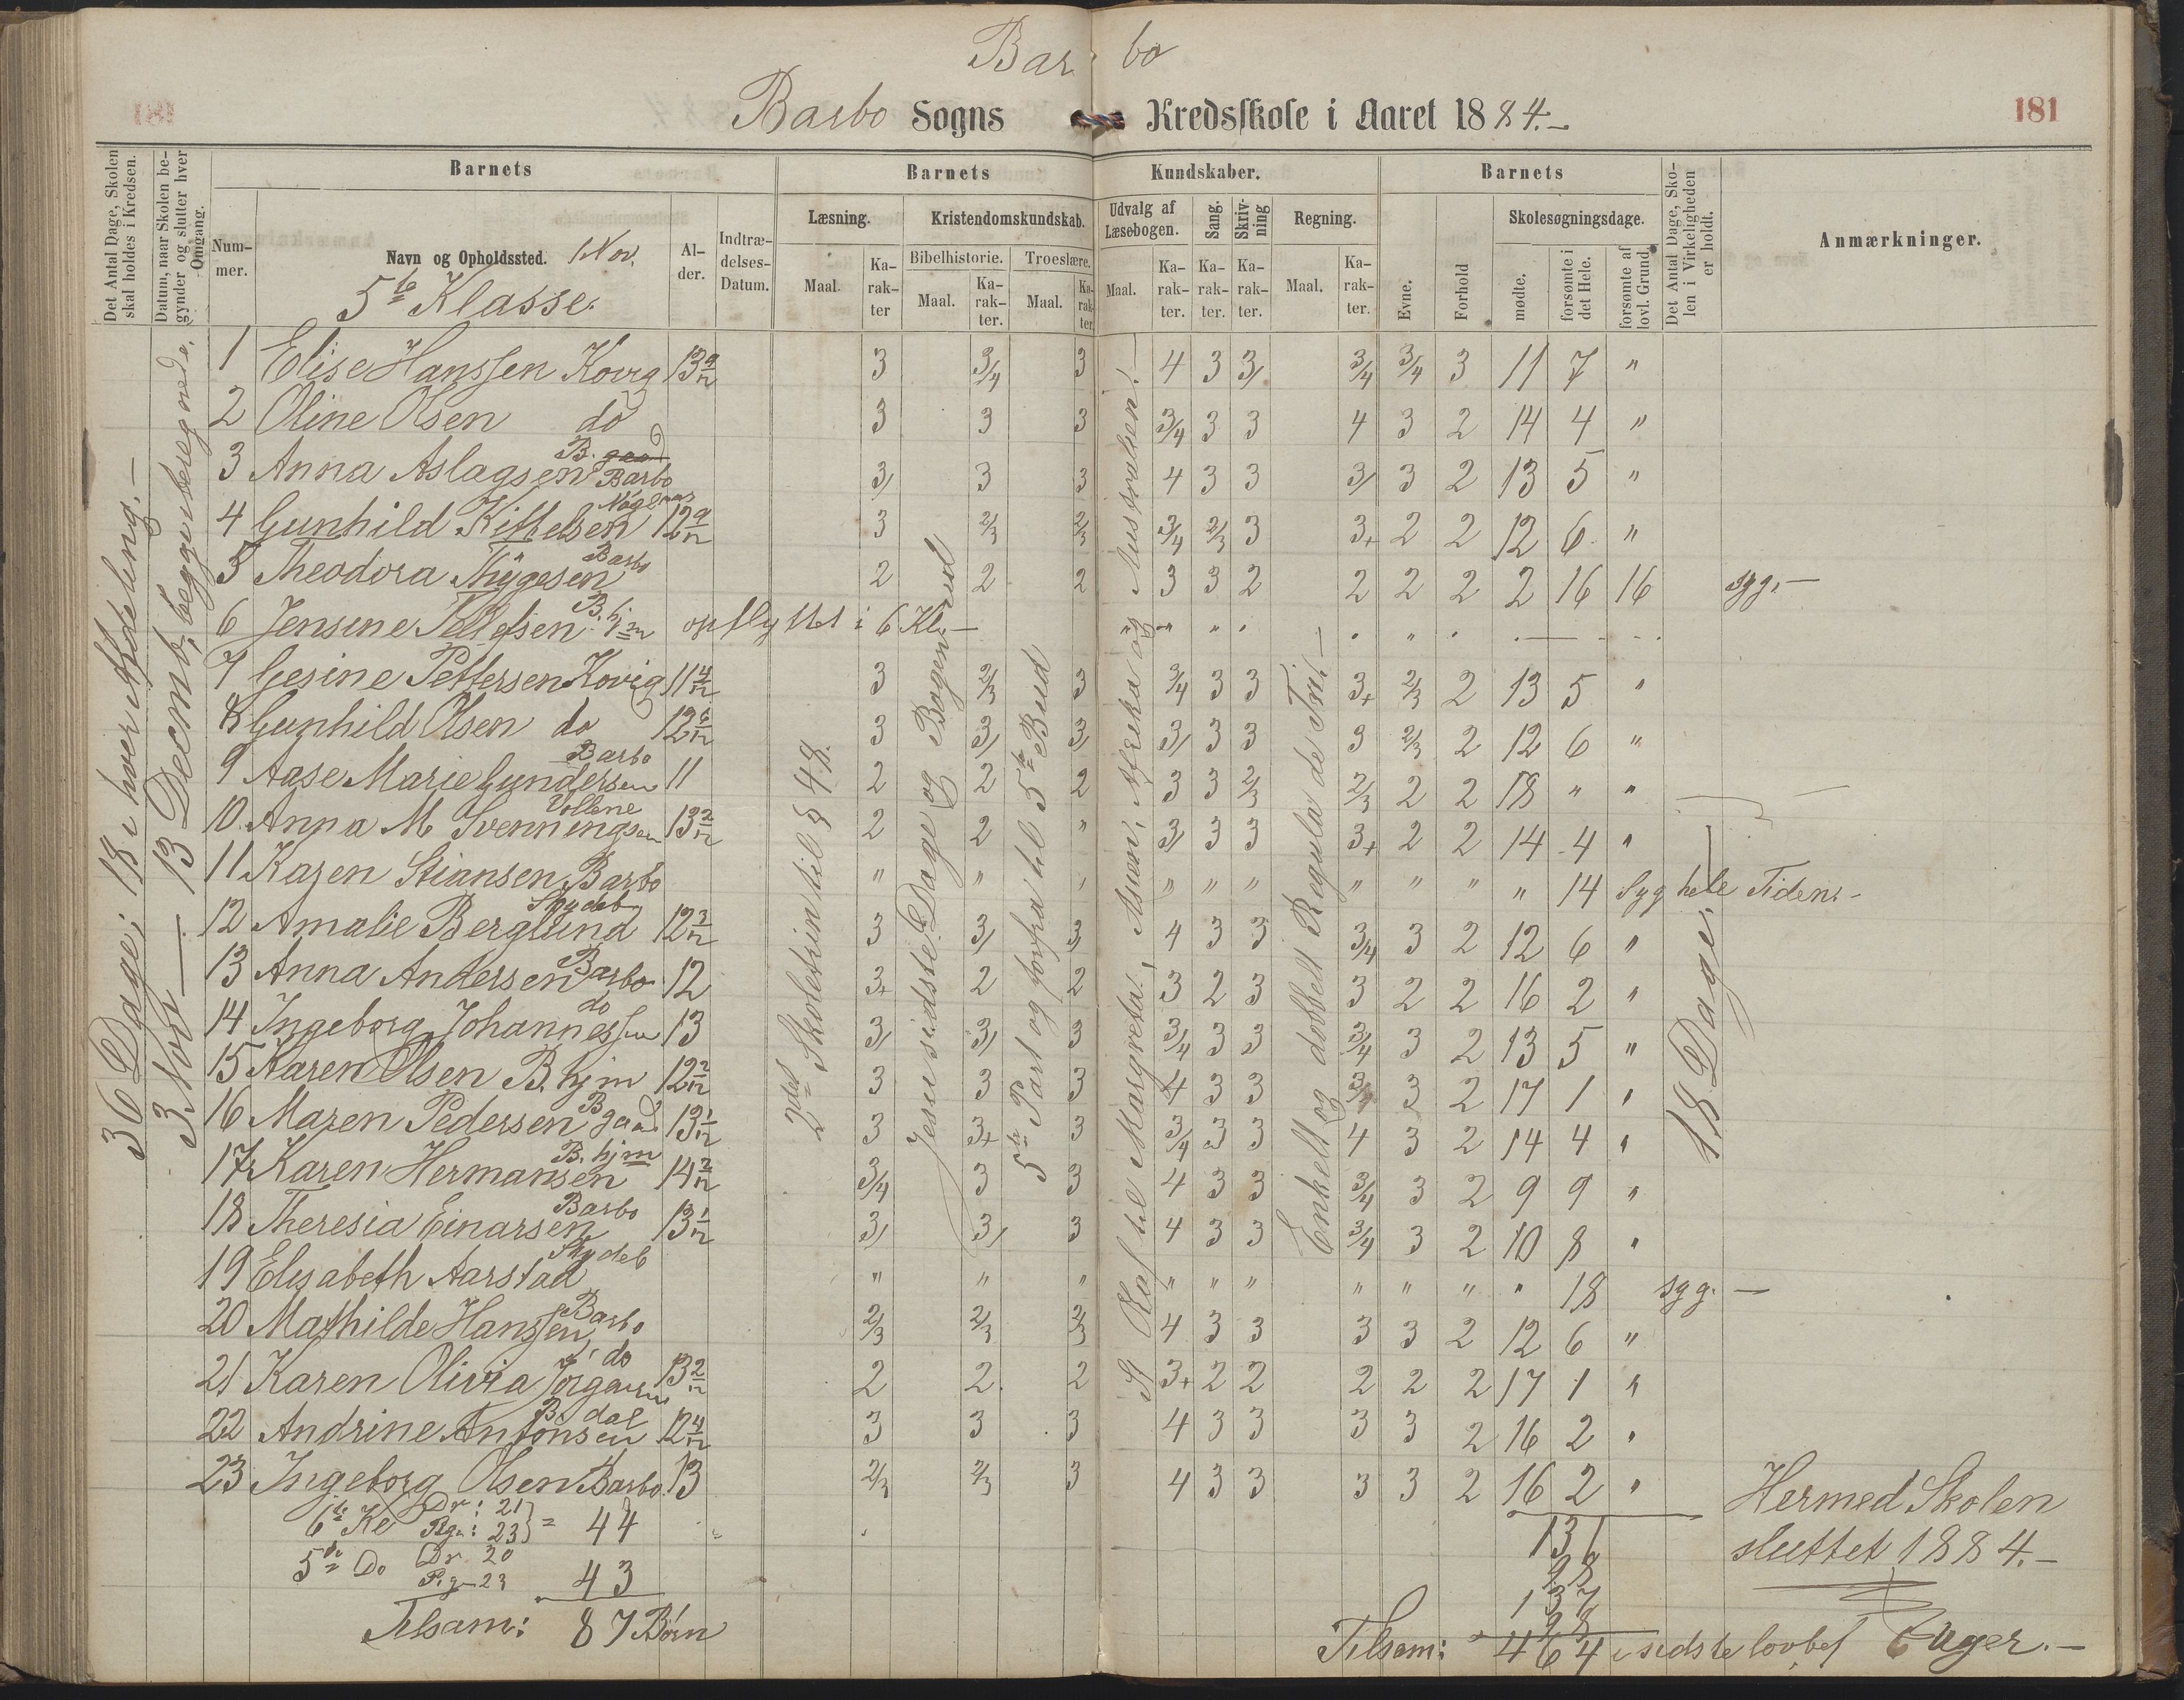 Bar bo
Barbo Sogns Kredsskole i Aaret 1884.—
181
Det Antal Dage, Skolen skal holdes i Kredsen.
Datum, naar Skolen begynder og slutter hver Omgang.
Barnets
Barnets Kundskaber.
Barnets
Det Antal Dage, Skolen i Virkeligheden er holdt.
Anmærkninger.
Nummer.
Navn og Opholdssted. 1 Nov.
Alder.
Indtrædelses-Datum.
Læsning.
Kristendomskundskab.
Udvalg af Læsebogen.
Sang.
Skrivning
Regning.
Evne.
Forhold
Skolesøgningsdage.
Bibelhistorie. Troeslære.
Maal. Karakter Maal. Karakter. Maal. Karakter. Maal. Karakter. Karakter. Karakter. Maal. Karakter.
mødte. forsømte i det Hele. forsømte af lovl. Grund.
5te Klasse.
36 Dage; 18 i hver Afdeling.—
3 Nov — 13 Decemb, begge iberegnede.
2det Skoletrin til § 48.
Jesu sidste Dage og Bogen ud
5te Part og forfra til 5te Bud
St Olaf til Margreta!, Asien, Afrika og Australien!—
Enkelt og dobbelt Regula de Tri.—
18 Dage.
1 Elise Hanssen Kovig 13 9/12 3 3/4 3 4 3 3/ 3/4 3/4 3 11 7 "
2 Oline Olsen do 3 3 3 3/4 3 3 4 3 2 14 4 "
3 Anna Aslagsen B. Barbo 3/ 3 3 4 3 3 3/ 3 2 13 5 "
4 Gunhild Kittelsen 12 9/12 3 2/3 2/3 3/4 2/3 3 3+ 2 2 12 6 "
5 Theodora Thygesen Barbo 2 2 2 3 3 2 2 2 2 2 16 16 syg.—
6 Jensine B. hjm opflyttet i 6 Kl.—
7 Gesine Pettersen Kovig 11 4/12 3 2/3 3 3/4 3 3 3+ 2/3 2 13 5 "
8 Gunhild Olsen do 12 6/12 3 3/ 3/ 3/ 3 3 3 2/3 2 12 6 "
9 Aase Marie Gundersen Barbo 11 2 2 2 3 3 2/3 2/3 2 2 18 " "
10. Anna M Svenningsen Vollene 13 2/12 2 2 " 3/ 3 3 3+ 2 2 14 4 "
11 Karen Stiansen Barbo " " " " " " " " " " 14 Syg hele Tiden.—
12 Amalie Berglund 12 3/12 3 3/ 3/ 4 3 3 3/4 3 2 12 6 "
13 Anna Andersen Barbo 12 3+ 2 2 3 2 3 3 2 2 16 2 "
14 Ingeborg Johannessen do 13 3/ 3/ 3 3/4 3 3 3/4 3 2 13 5 "
15 Karen Olsen B. hjm 12 2/12 3 3 3 4 3 3 3/ 3 2 17 1 "
16 Maren Pedersen B gaad 13 1/12 3 3+ 3 3/4 3 3 4 3 2 14 4 "
17 Karen Hermansen B. hjm 14 2/12 3/4 3 3 4 3 3 3/4 3 2 9 9 "
18 Theresia Einarsen Barbo 13 1/12 3/ 3/ 3 4 3 3 3/4 3 2 10 8 "
19 Elisabeth Aarstad " " " " " " " " " " 18 syg.—
20 Mathilde Hanssen Barbo 2/3 2/3 2/3 4 3 3 3 3 2 12 6 "
21 Karen Olivia Jörgensen do 13 2/12 2 2 2 3+ 2 2 2 2 2 17 1 "
22 Andrine Antonsen B. dal 12 4/12 3 3 3 4 3 3 3 3 2 16 2 "
23 Ingeborg Olsen Barbo 13 2/3 2/3 3 4 3 3 3 3 2 16 2 "
6te Kl Dr: 21 Pgr: 23 } = 44
5te Do Dr 20 Pig 23 43
Tilsam: 87 Börn
131
98
137
98
Tilsam: 464 i sidste lovbef 6 Uger.—
Hermed Skolen
sluttet 1884.—